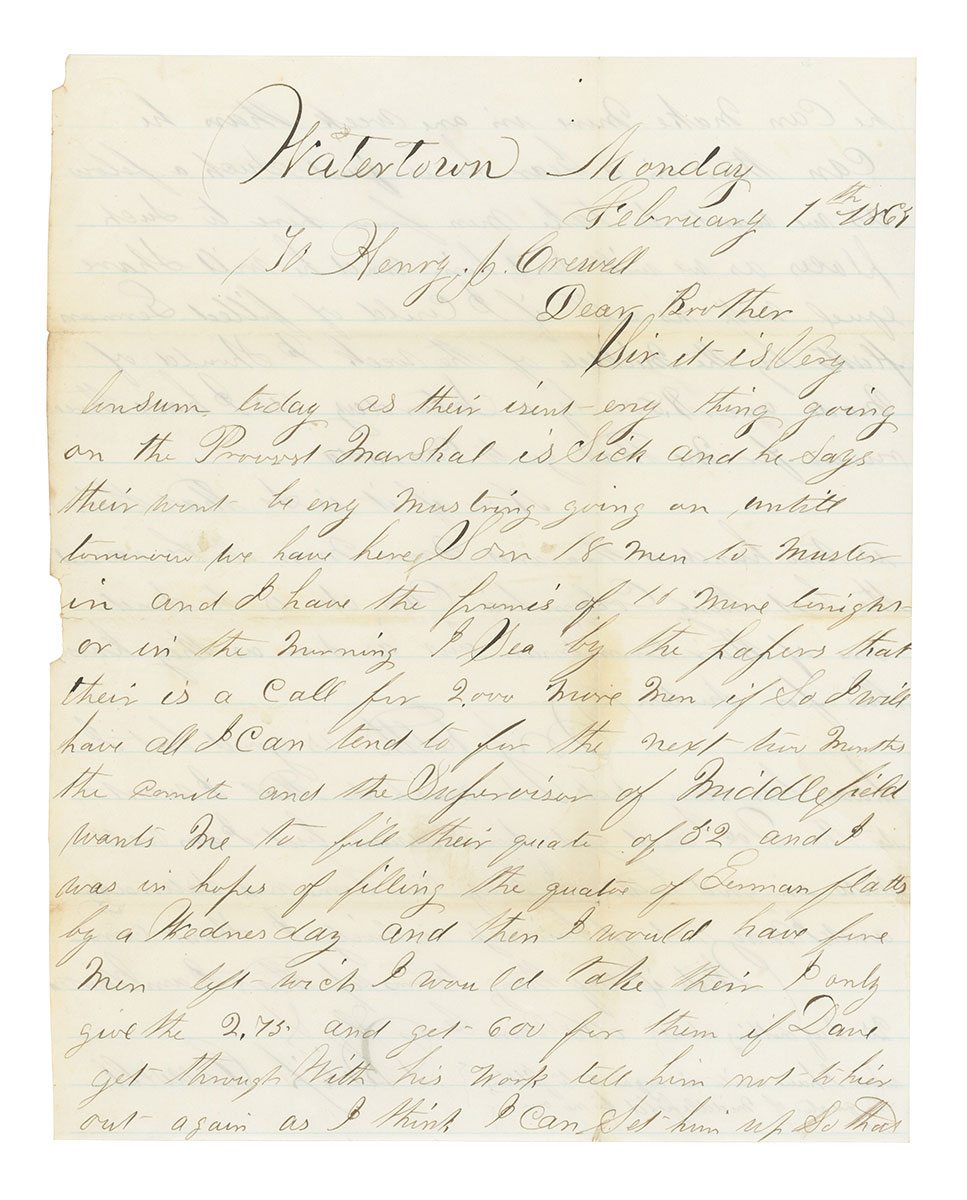 Watertown Monday
February 1th 1864
To Henry. J. Crewell
Dear Brother
Sir it is Very
lonsum today as their isent eny thing going
on the Provost Marshal is Sick and he Says
their wont be eny mustring going on untill
tomorrow we have here Som 18 men to muster
in and I have the promis of 10 more tonight
or in the Morning I Sea by the papers that
their is a Call for 2,000 more Men if So I will
have all I Can tend to for the next two Months
the comite and the Supervisor of Middlefield
wants Me to fill their quate of 32 and I
was in hopes of filling the quatoe of German flatts
by a Wednesday and then I would have five
Men left wich I would take their I only
give the 2.75 and get 600 for them if Dave
get through With his work tell him not to hier
out again as I think I Can Set him up So that